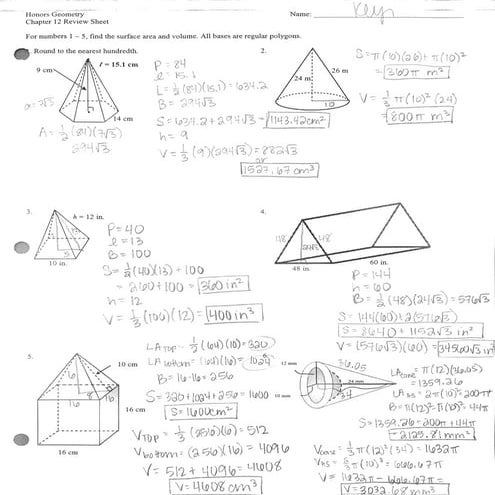 Honors Geometry
Chapter 12 Review Sheet
Name: Key
For numbers 1 – 5, find the surface area and volume. All bases are regular polygons.
Round to the nearest hundredth.
9 cm
l = 15.1 cm
14 cm
a = 7√3
A = ½(84)(7√3)
294√3
P = 84
l = 15.1
L = ½(84)(15.1) = 634.2
B = 294√3
S = 634.2 + 294√3 = 1143.42 cm²
h = 9
V = ⅓(9)(294√3) = 882√3
or
1527.67 cm³
2.
24 m
26 m
10
S = π(10)(26) + π(10)²
= 360π m²
V = ⅓π(10)²(24)
= 800π m³
3.
h = 12 in.
10 in.
P = 40
l = 13
B = 100
S = ½(40)(13) + 100
= 260 + 100 = 360 in²
h = 12
V = ⅓(100)(12) = 400 in³
4.
48
48
24√3
48 in.
60 in.
P = 144
h = 60
B = ½(48)(24√3) = 576√3
S = 144(60) + 2(576√3)
S = 8640 + 1152√3 in²
V = (576√3)(60) = 34560√3 in³
5.
10 cm
16 cm
16 cm
LA TOP = ½(64)(10) = 320
LA bottom = (64)(16) = 1024
B = 16·16 = 256
S = 320 + 1024 + 256 = 1600
S = 1600 cm²
V TOP = ⅓(256)(6) = 512
V bottom = (256)(16) = 4096
V = 512 + 4096 = 4608
V = 4608 cm³
12 mm
10 mm
24 mm
36.05
34
LA cone = π(12)(36.05)
= 1359.26
B = π(12)² - π(10)² = 44π
S = 1359.26 + 200π + 44π
= 2125.81 mm²
V cone = ⅓π(12)²(34) = 1632π
V = 1632π - 666.67π =
= 3032.68 mm³